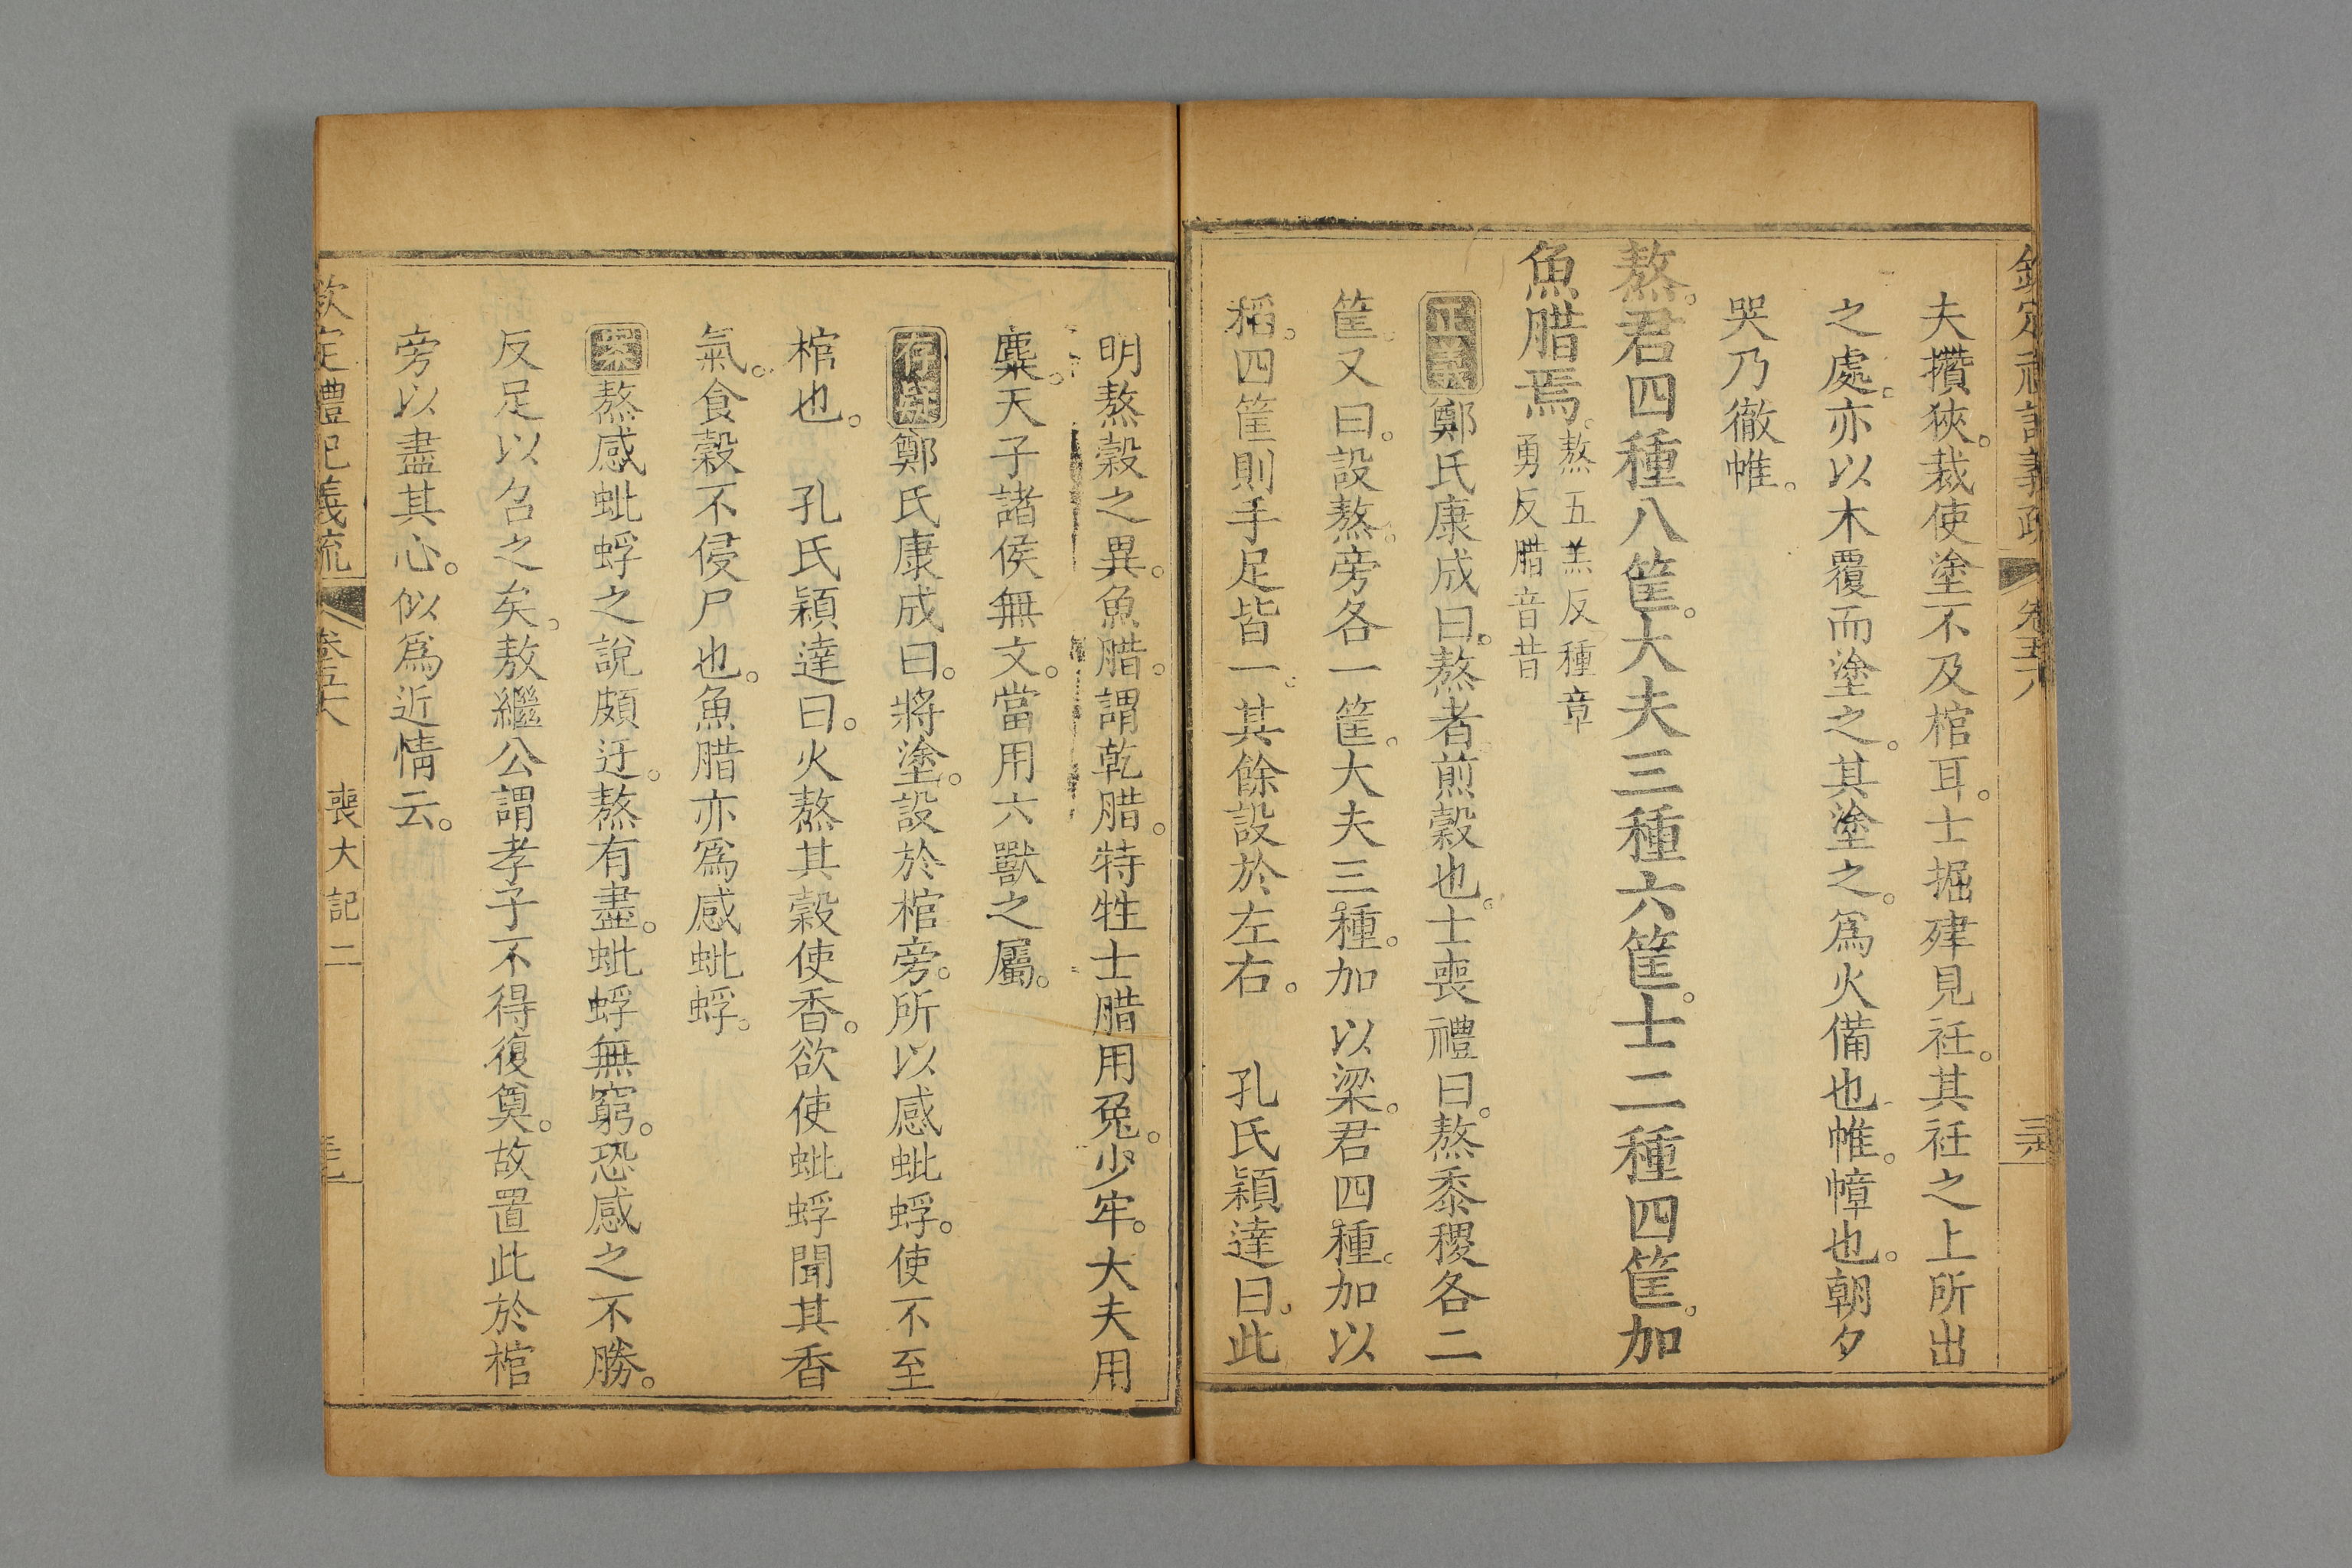 欽定禮記義疏 卷五六
夫攢狹。裁使塗不及棺耳。士掘肂見衽。其衽之上所出
之處。亦以木覆而塗之。其塗之。爲火備也帷。幛也。朝夕
哭乃徹帷。
熬。君四種八筐。大夫三種六筐。士二種四筐。加
魚腊焉。熬五羔反種章
勇反腊音昔
正義鄭氏康成曰。熬者煎穀也。士喪禮曰。熬黍稷各二
筐。又曰。設熬。旁各一筐。大夫三種。加以粱。君四種。加以
稻。四筐則手足皆一。其餘設於左右。 孔氏穎達曰。此
明熬穀之異。魚腊。謂乾腊。特牲士腊用兔。少牢。大夫用
麋。天子諸侯無文。當用六獸之屬。
存疑鄭氏康成曰。將塗。設於棺旁。所以感蚍蜉。使不至
棺也。 孔氏穎達曰。火熬其穀使香。欲使蚍蜉聞其香
氣。食穀不侵尸也。魚腊亦爲感蚍蜉。
案熬感蚍蜉之說頗迂。熬有盡。蚍蜉無窮。恐感之不勝。
反足以召之矣。敖繼公謂孝子不得復奠。故置此於棺
旁以盡其心。似爲近情云。
欽定禮記義疏 卷五六 喪大記二